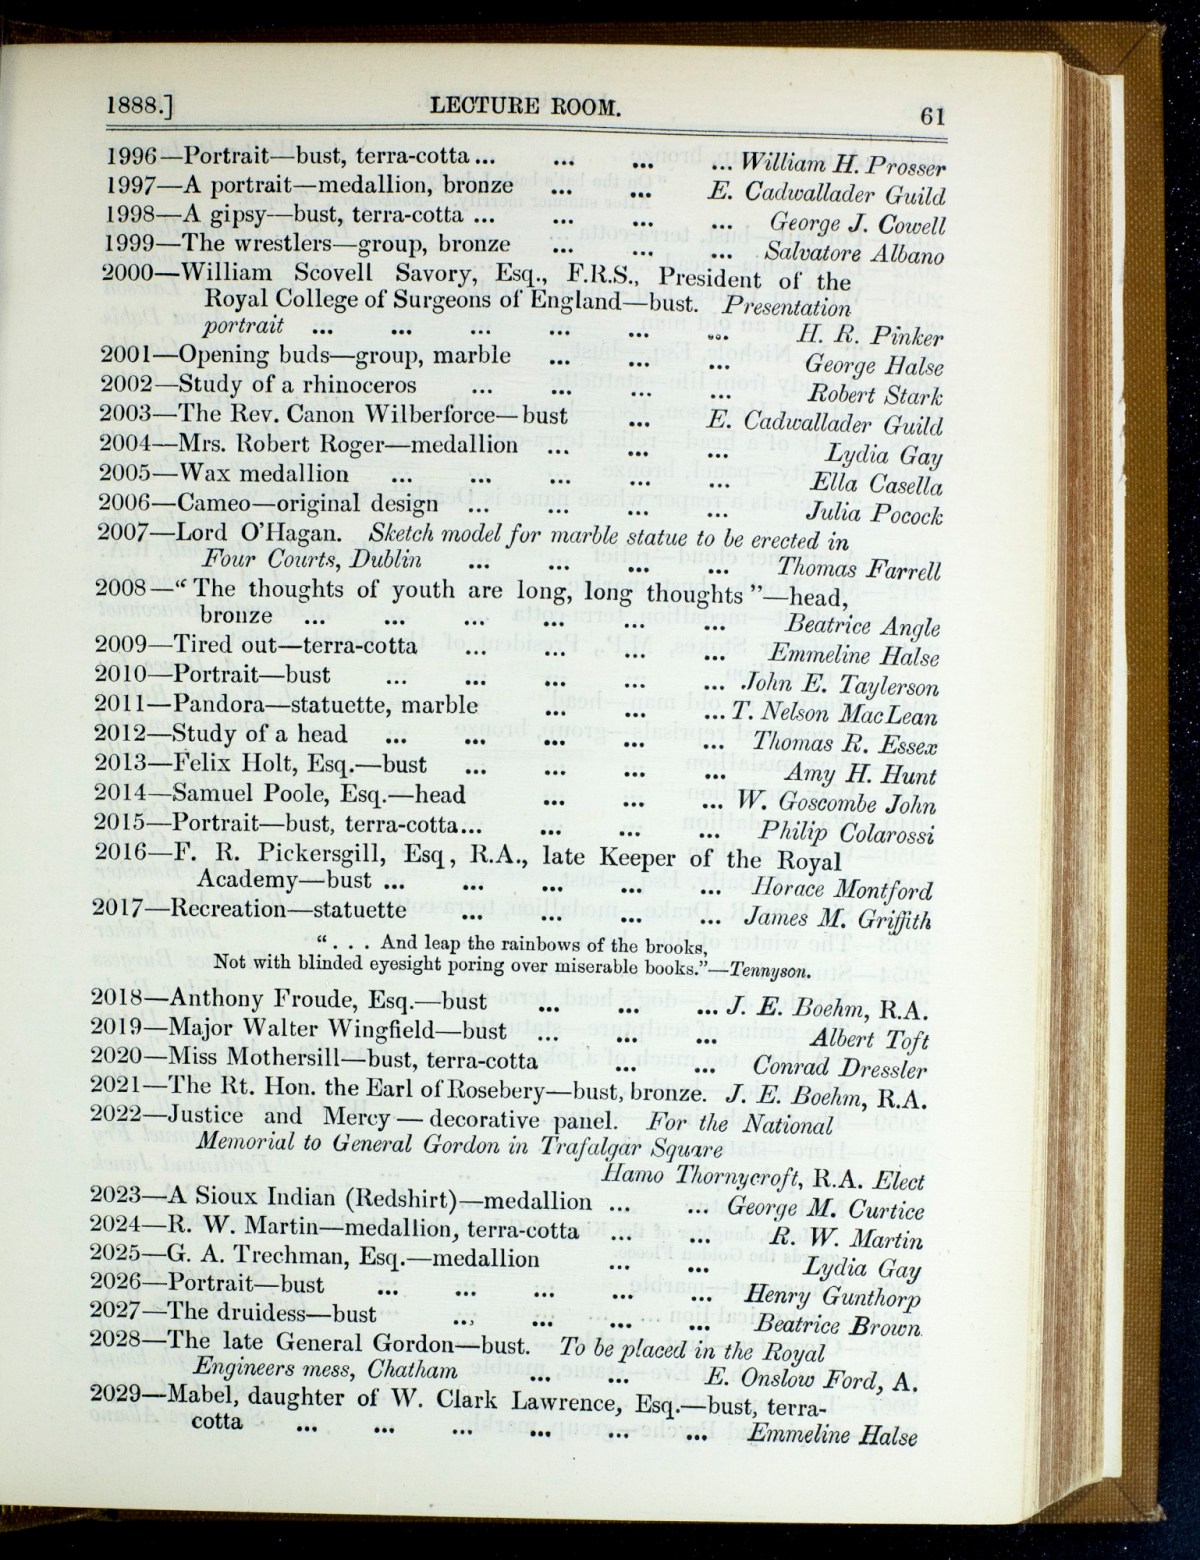 1888.] LECTURE ROOM. 61
1996—Portrait—bust, terra-cotta... ... ... ... William H. Prosser
1997—A portrait—medallion, bronze ... ... E. Cadwallader Guild
1998—A gipsy—bust, terra-cotta ... ... ... ... George J. Cowell
1999—The wrestlers—group, bronze ... ... ... Salvatore Albano
2000—William Scovell Savory, Esq., F.R.S., President of the
Royal College of Surgeons of England—bust. Presentation
portrait ... ... ... ... ... ... H. R. Pinker
2001—Opening buds—group, marble ... ... ... George Halse
2002—Study of a rhinoceros ... ... ... ... Robert Stark
2003—The Rev. Canon Wilberforce—bust ... E. Cadwallader Guild
2004—Mrs. Robert Roger—medallion ... ... ... Lydia Gay
2005—Wax medallion ... ... ... ... ... Ella Casella
2006—Cameo—original design ... ... ... ... Julia Pocock
2007—Lord O'Hagan. Sketch model for marble statue to be erected in
Four Courts, Dublin ... ... ... ... Thomas Farrell
2008—“ The thoughts of youth are long, long thoughts ”—head,
bronze ... ... ... ... ... ... Beatrice Angle
2009—Tired out—terra-cotta ... ... ... ... Emmeline Halse
2010—Portrait—bust ... ... ... ... ... John E. Taylerson
2011—Pandora—statuette, marble ... ... ... T. Nelson MacLean
2012—Study of a head ... ... ... ... ... Thomas R. Essex
2013—Felix Holt, Esq.—bust ... ... ... ... Amy H. Hunt
2014—Samuel Poole, Esq.—head ... ... ... W. Goscombe John
2015—Portrait—bust, terra-cotta... ... ... ... Philip Colarossi
2016—F. R. Pickersgill, Esq, R.A., late Keeper of the Royal
Academy—bust ... ... ... ... ... Horace Montford
2017—Recreation—statuette ... ... ... ... James M. Griffith
“ . . . And leap the rainbows of the brooks,
Not with blinded eyesight poring over miserable books.”—Tennyson.
2018—Anthony Froude, Esq.—bust ... ... ... J. E. Boehm, R.A.
2019—Major Walter Wingfield—bust ... ... ... Albert Toft
2020—Miss Mothersill—bust, terra-cotta ... ... Conrad Dressler
2021—The Rt. Hon. the Earl of Rosebery—bust, bronze. J. E. Boehm, R.A.
2022—Justice and Mercy — decorative panel. For the National
Memorial to General Gordon in Trafalgar Square
Hamo Thornycroft, R.A. Elect
2023—A Sioux Indian (Redshirt)—medallion ... ... George M. Curtice
2024—R. W. Martin—medallion, terra-cotta ... ... R. W. Martin
2025—G. A. Trechman, Esq.—medallion ... ... Lydia Gay
2026—Portrait—bust ... ... ... ... ... Henry Gunthorp
2027—The druidess—bust ... ... ... ... Beatrice Brown
2028—The late General Gordon—bust. To be placed in the Royal
Engineers mess, Chatham ... ... E. Onslow Ford, A.
2029—Mabel, daughter of W. Clark Lawrence, Esq.—bust, terra-
cotta ... ... ... ... ... ... Emmeline Halse